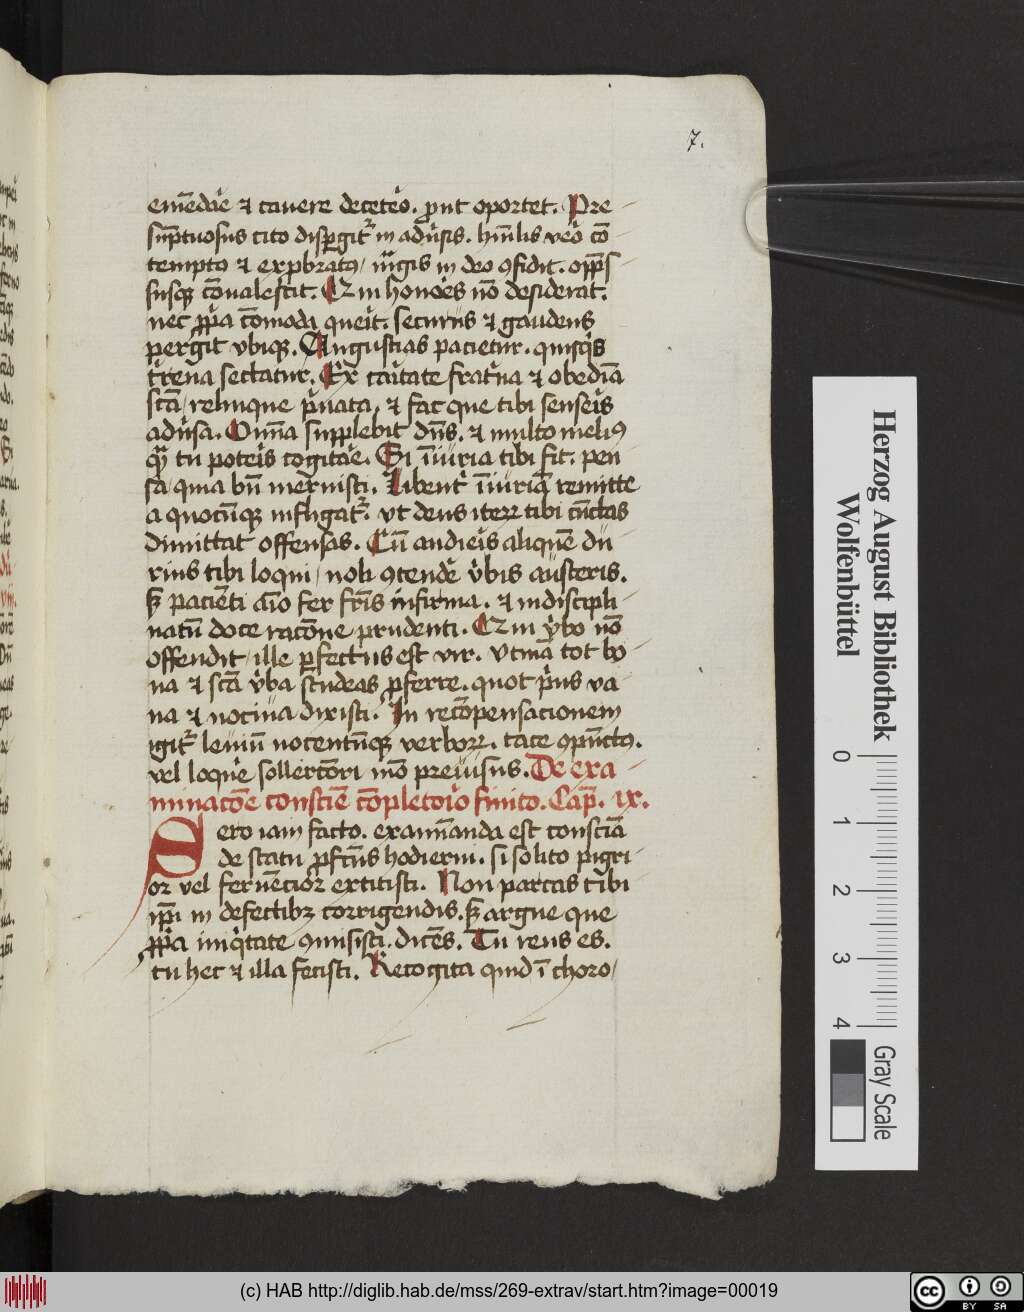 7.
emēdare ⁊ cavere decetero. prout oportet. Pre
sūptuosus cito dispergit᷑ in adusis. humilis vero cō
temptus ⁊ exprobratus / magis in deo ꝯfidit. oppress
susqꝫ cōvalescit. Qz in honores nō desiderat.
nec ppria cōmoda querit. securus ⁊ gaudens
pergit ubiqꝫ. Angustias pacietur. quisqs
terrena sectatur. Ex caritate fraterna ⁊ obediā
scā / relinque privata, ⁊ fac que tibi senseris
adusa. Omnia supplebit dns. ⁊ multo melius
qm tu poteris cogitare. Si iniuria tibi fit. pen
sa / quia bn meruisti. Libenter iniuriā remitte
a quocūqꝫ infligat᷑. ut deus iterꝝ tibi cūctas
dimittat offensas. Cū audieris aliquē du
rius tibi loqui / noli ꝯtendere verbis austeris.
sꝫ pacienti aīo fer fris infirma. ⁊ indiscipli
natū doce racōne prudenti. Qz in verbo nō
offendit / ille perfectus est vir. Utinā tot bo
na ⁊ scā verba studeas proferre. quot prius va
na ⁊ nociva dixisti. In recōpensacionem
igit᷑ leviū nocentūqꝫ verborꝝ. tace ꝯpunctus.
vel loquere sollercori mō previsus. De exa
minacōe conscīe cōpletorio finito. Cap. ix.
Sero iam facto. examinanda est consciā
de statu profectus hodierni. si solito pigri
or vel fervēcior extitisti. Non parcas tibi
ipi in defectibꝫ corrigendis. sꝫ argue que
ppria iniqtate ꝯmisisti. dicēs. Tu reus es.
tu hec ⁊ illa fecisti. Recogita quid ī choro /
Herzog August Bibliothek
Wolfenbüttel
0 1 2 3 4
Gray Scale
(c) HAB http://diglib.hab.de/mss/269-extrav/start.htm?image=00019
cc BY SA